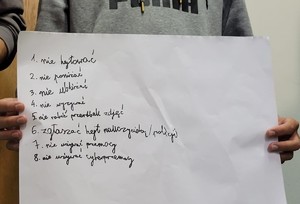 1. nie hejtować
2. nie
3. nie ubliżać
4. nie wyzywać
5 nie robić przeróbek zdjęć
6. zgłaszać hejt nauczycielom/policji
7. nie używać przemocy
8. nie używać cyberprzemocy